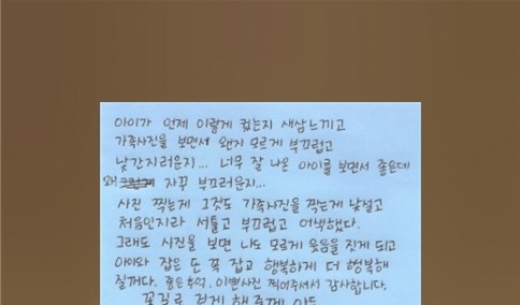 아이가 언제 이렇게 컸는지 새삼느끼고
가족사진을 보면서 왠지 모르게 부끄럽고
낯간지러운지... 너무 잘 나온 아이를 보면서 좋은데
왜 자꾸 부끄러운지...
사진 찍는게 그것도 가족사진을 찍는게 낯설고
처음인지라 서툴고 부끄럽고 어색했다.
그래도 사진을 보면 나도 모르게 웃음을 짓게 되고
아이와 잡은 손 꼭 잡고 행복하게 더 행복해
질꺼다. 좋은추억. 이쁜사진 찍어주셔서 감사합니다.